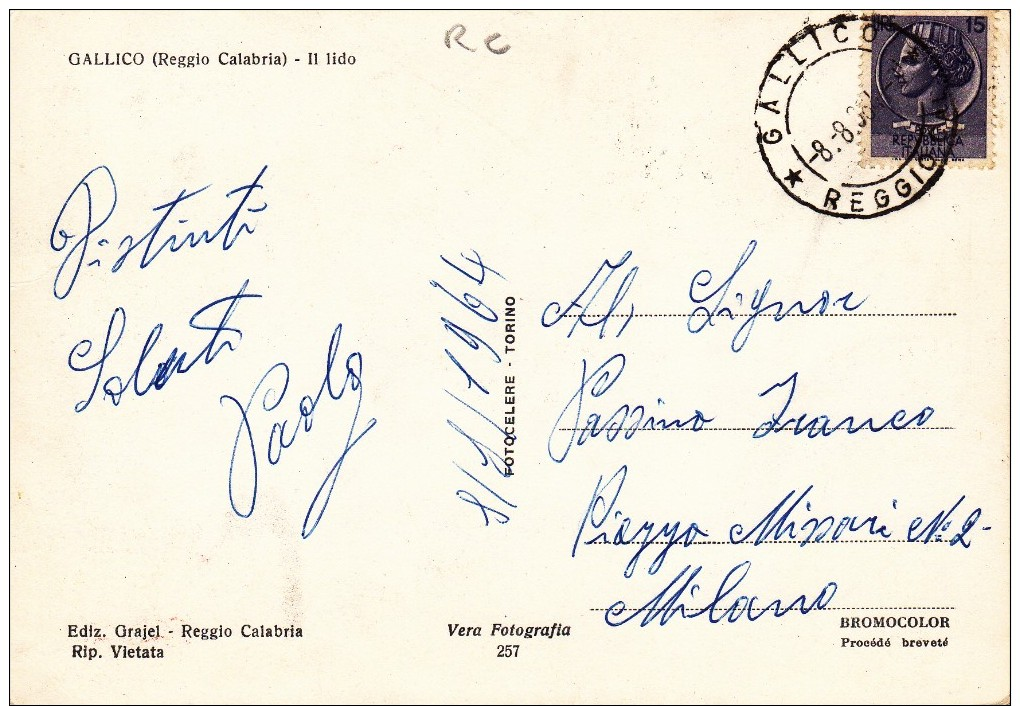 RC
GALLICO (Reggio Calabria) - Il lido
LIRE 15
REPVBBLICA
ITALIANA
GALLICO
REGGIO
-8.-8.
Distinti
Saluti
Paolo
8/8/1964
FOTOCELERE - TORINO
Al, Signor
Passino Franco
Piazza Missori N: 2-
Milano
Ediz. Grajel - Reggio Calabria
Rip. Vietata
Vera Fotografia
257
BROMOCOLOR
Procédé breveté